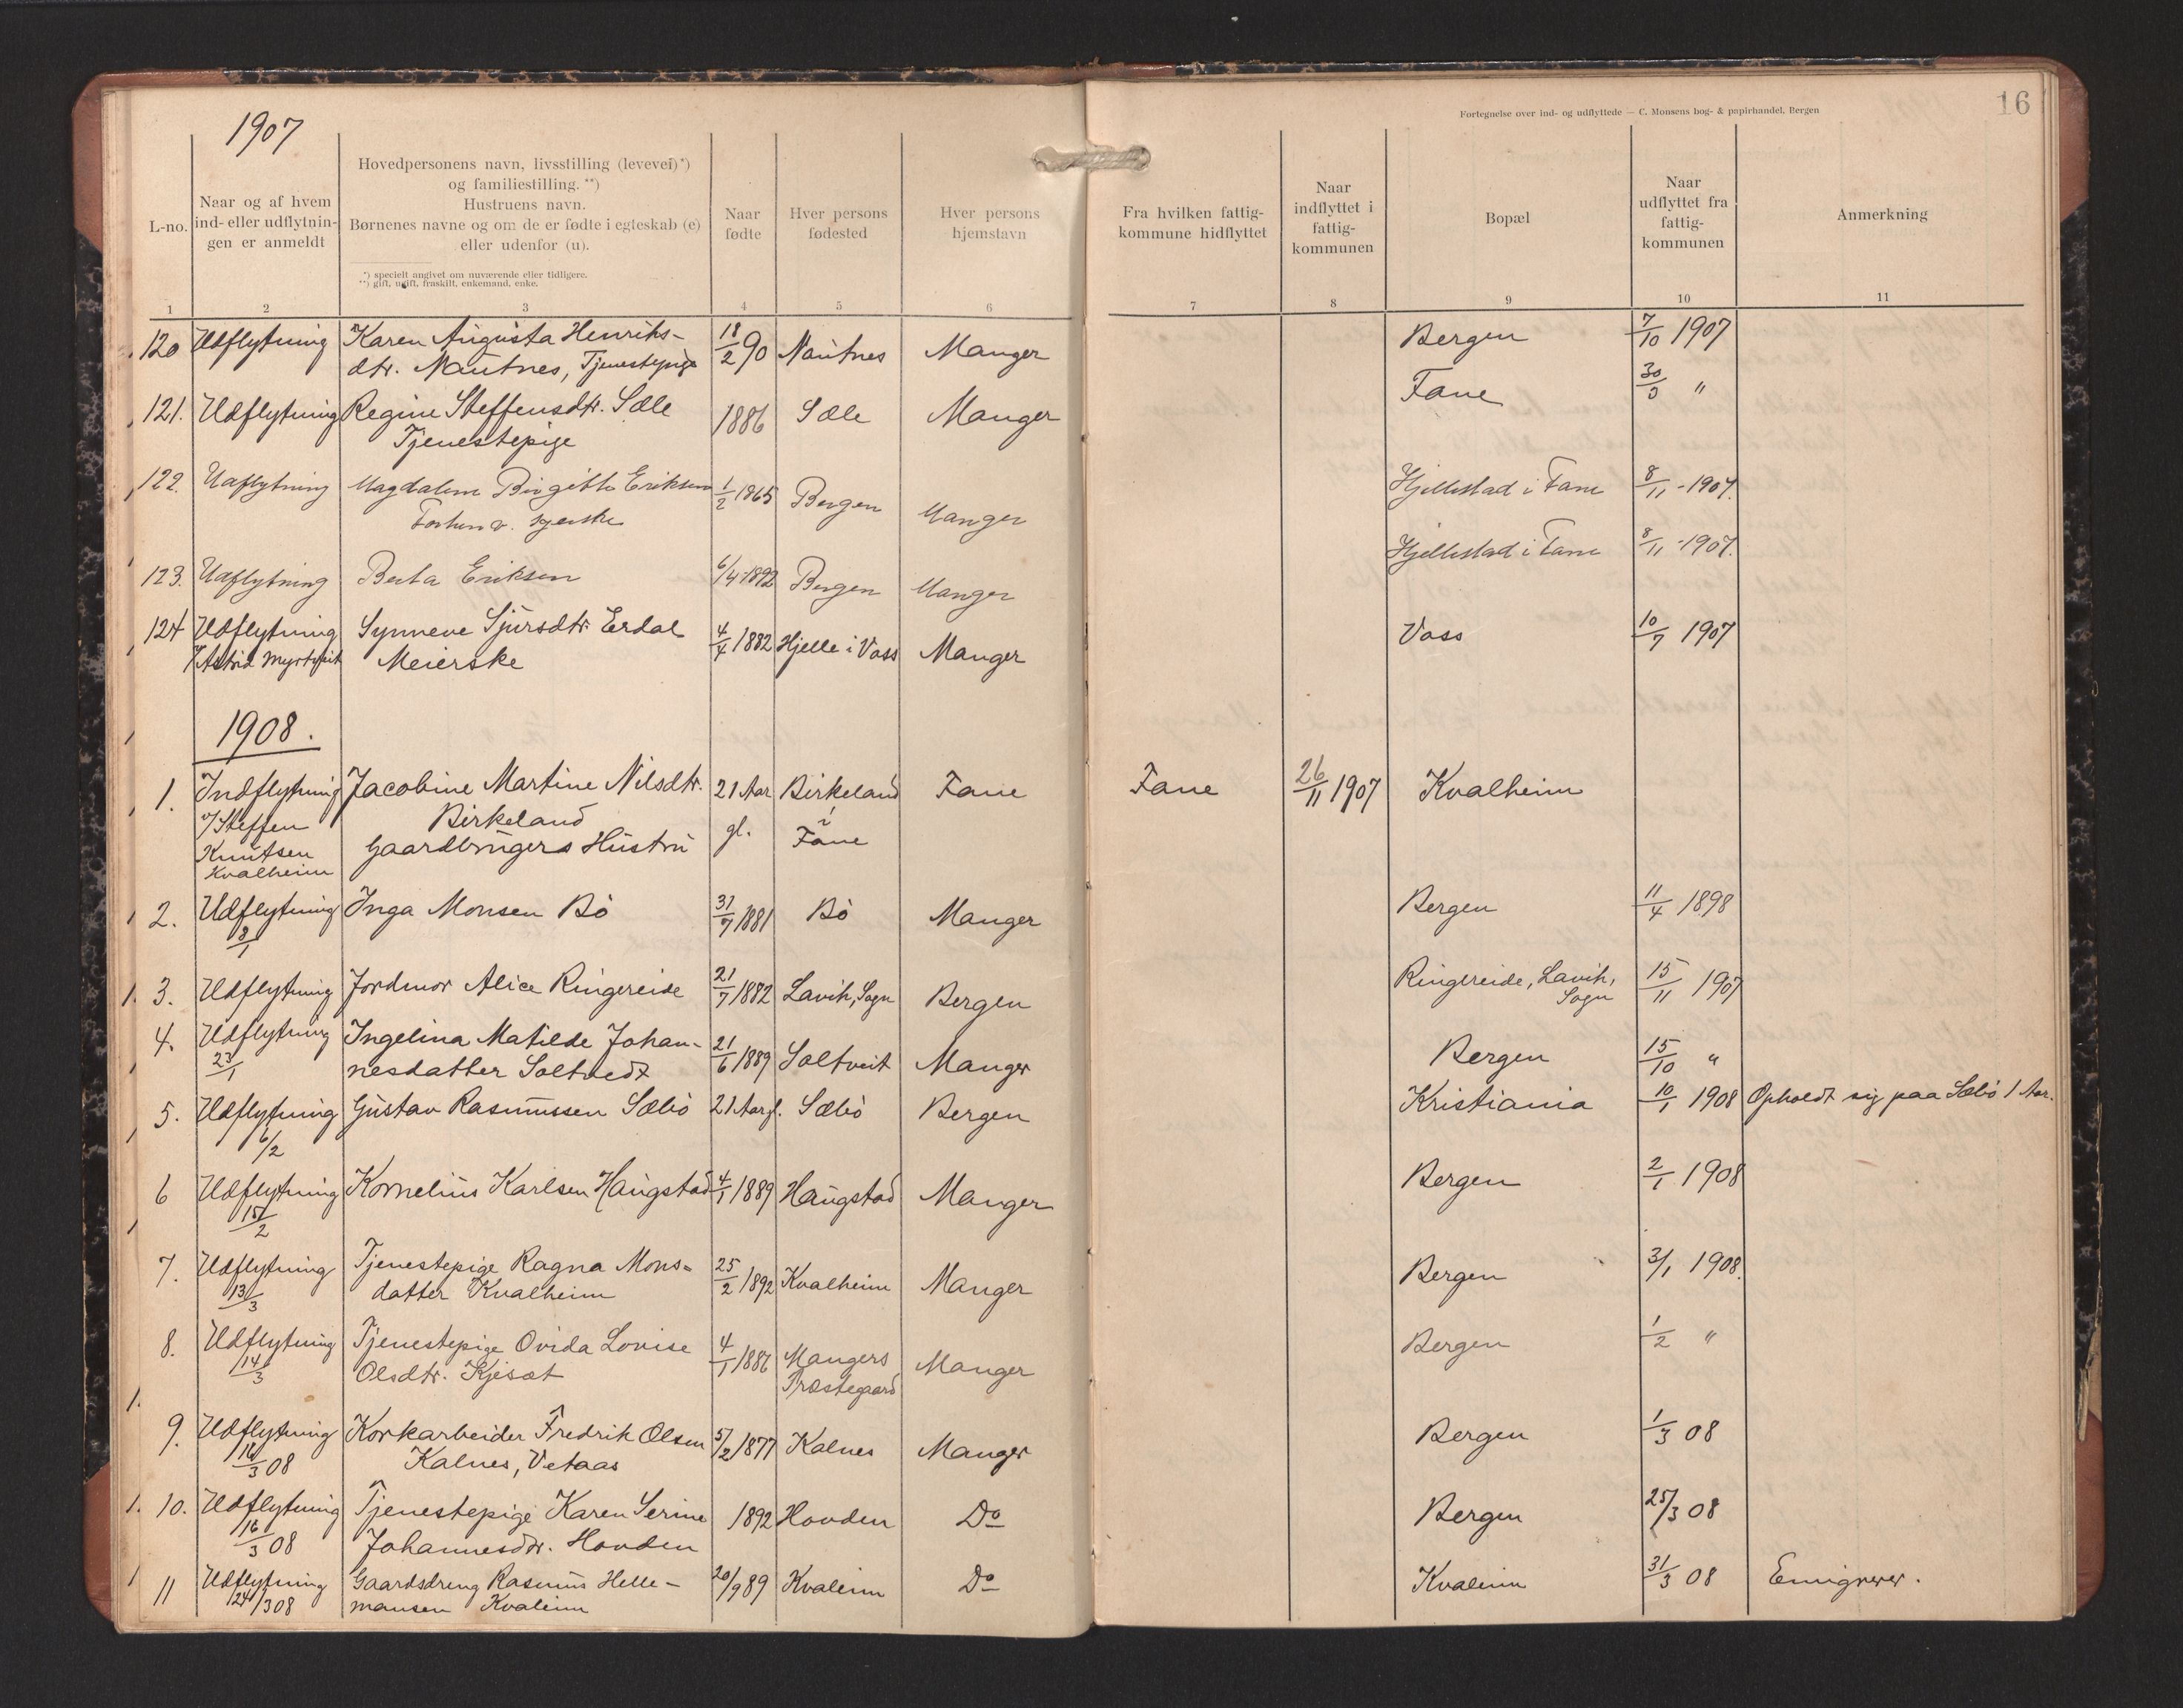 1907
Fortegnelse over ind- og udflyttede — C. Monsens bog- & papirhandel, Bergen
16
L-no.
Naar og af hvem
ind- eller udflytnin-
gen er anmeldt
Hovedpersonens navn, livsstilling (levevei)*)
og familiestilling. **)
Hustruens navn.
Børnenes navne og om de er fødte i egteskab (e)
eller udenfor (u).
*) specielt angivet om nuværende eller tidligere.
**) gift, ugift, fraskilt, enkemand, enke.
Naar
fødte
Hver persons
fødested
Hver persons
hjemstavn
Fra hvilken fattig-
kommune hidflyttet
Naar
indflyttet i
fattig-
kommunen
Bopæl
Naar
udflyttet fra
fattig-
kommunen
Anmerkning
1 2 3 4 5 6 7 8 9 10 11
120 Udflytning Karen Augusta Henriks- 18/2 90 Nautnes Manger Bergen 7/10 1907
dtr. Nautnes, Tjenestepige
121. Udflytning Regine Steffensdtr. Sæle 1886 Sæle Manger Fane 30/9 "
Tjenestepige
122. Udflytning Magdalene Birgitte Eriksen 1/2 1865 Bergen Manger Hjellestad i Fane 8/11 - 1907.
Forhenv. syerske
123. Udflytning Berta Eriksen 6/4-1892 Bergen Manger Hjellestad i Fane 8/11 - 1907.
124 Udflytning Synneve Sjursdtr. Erdal 4/4 1882 Hjelle i Voss Manger Voss 10/7 1907
v/Astrid Myrtveit Meierske
1908.
1. Indflytning Jacobine Martine Nilsdtr. 21 Aar Birkeland Fane Fane 26/11 1907 Kvalheim
v/Steffen Birkeland gl. i
Knutsen Gaardbrugers Hustru Fane
Kvalheim
2. Udflytning Inga Monsen Bö 31/7 1881 Bö Manger Bergen 11/4 1898
8/1
3. Udflytning Jordmor Alice Ringereide 21/7 1882 Lavik, Sogn Bergen Ringereide, Lavik, 15/11 1907
Sogn
4. Udflytning Ingelina Matilde Johan- 21/6 1889 Soltveit Manger Bergen 15/10 "
23/1 nesdatter Soltvedt
5. Udflytning Gustav Rasmussen Sæbö 21 Aar gl. Sæbö Bergen Kristiania 10/1 1908 Opholdt sig paa Sæbö 1 Aar.
6/2
6 Udflytning Kornelius Karlsen Haugstad 4/1 1889 Haugstad Manger Bergen 2/1 1908
15/2
7. Udflytning Tjenestepige Ragna Mons- 25/2 1892 Kvalheim Manger Bergen 3/1 1908.
13/3 datter Kvalheim
8. Udflytning Tjenestepige Ovida Lovise 4/1 1886 Mangers Manger Bergen 1/2 "
14/3 Olsdtr. Kjesæt Præstegaard
9. Udflytning Korkarbeider Fredrik Olsen 5/2 1877 Kalnes Manger Bergen 1/3 08
16/3 08 Kalnes, Vetaas
10. Udflytning Tjenestepige Karen Serine 1892 Hovden Do Bergen 25/3 08
16/3 08 Johannesdtr. Hovden
11 Udflytning Gaardsdreng Rasmus Helle- 20/9 89 Kvaleim Do Kvaleim 31/3 08 Emigrerer.
24/3 08 mansen Kvaleim